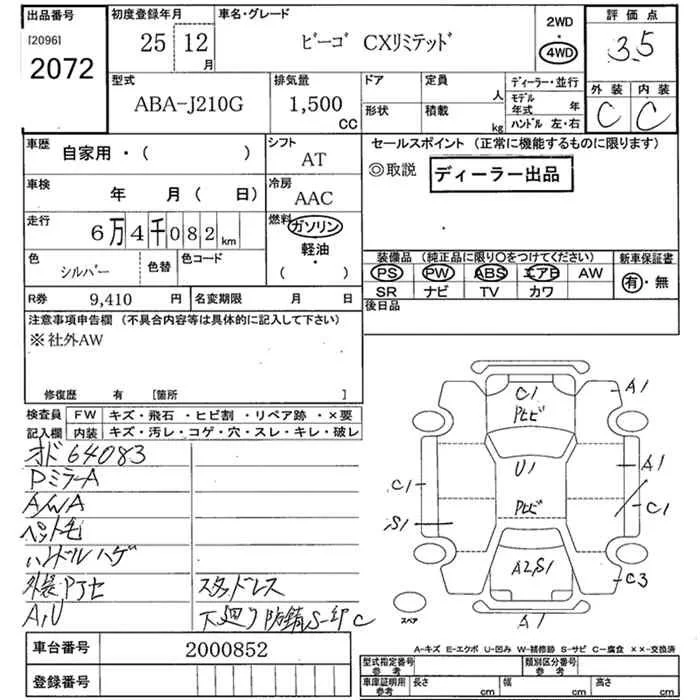 出品番号 初度登録年月 車名・グレード 2WD 評価点
[2096] 25 12月 ビーゴ CXリミテッド ・ 3.5
2072 4WD
型式 排気量 ドア 定員 人 ディーラー・並行 外装 内装
ABA-J210G 1,500 CC 形状 積載 kg モデル年式 年 C C
ハンドル 左・右
車歴 自家用・( ) シフト AT セールスポイント (正常に機能するものに限ります)
◎取説 ディーラー出品
車検 年 月( 日) 冷房 AAC
走行 6万4千082km 燃料 ガソリン
軽油・( )
色 シルバー 色替 色コード
装備品 (純正品に限り○をつけてください) 新車保証書
PS PW ABS エアB AW 有・無
SR ナビ TV カワ
R券 9,410 円 名変期限 月 日 後日品
注意事項申告欄 (不具合内容等は具体的に記入して下さい)
※社外AW
修復歴 有 [箇所 ]
検査員 FW キズ・飛石・ヒビ割・リペア跡・×要
記入欄 内装 キズ・汚レ・コゲ・穴・スレ・キレ・破レ
オド64083
PミラーA
A/WA
ペット毛
ハンドルハゲ
外装PJセ スタッドレス
A,U 下廻り防錆S-印C
C1
A1
U1
A1
C1
C1
S1
A2S1
C3
A1
スペア
A-キズ E-エクボ U-凹み W-補修跡 S-サビ C-腐食 ××-交換済
車台番号 2000852
登録番号
型式指定番号 参考 類別区分番号 参考
車庫証明用 参考 長さ cm 幅 cm 高さ cm